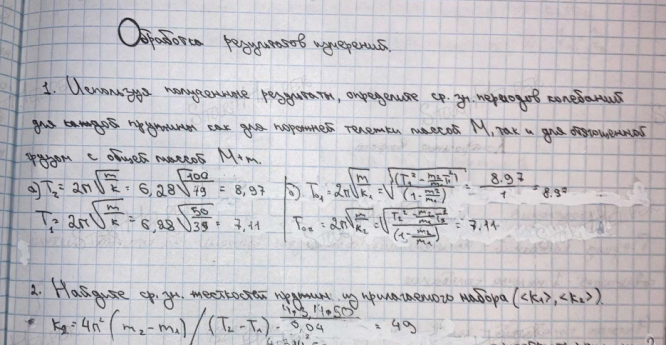 Обработка результатов измерений.
1. Используя полученные результаты, определите ср. зн. периодов колебаний
для каждой пружины как для порожней тележки массой M, так и для отягощенной
грузом с общей массой M+m.
а) T₂ = 2π√(m/k) = 6,28√(100/49) = 8,97 б) T₀₁ = 2π√(m/k₁) = = 8.97/1 = 8.97
T₁ = 2π√(m/k) = 6,28 = 7,11 T₀₂ = 2π√(m/k₂) = = 7.11
2. Найдите ср. зн. жесткостей пружин из прилагаемого набора (<k₁>, <k₂>).
k₂ = 4π² (m₂ - m₁) / (T₂ - T₁) · 0,04 = 49